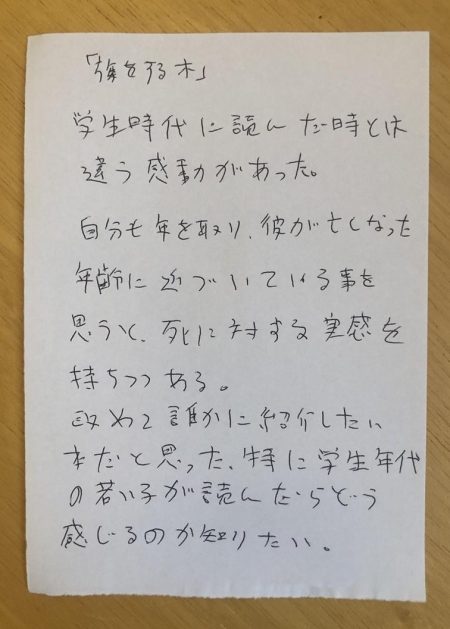 「旅をする木」
学生時代に読んだ時とは
違う感動があった。
自分も年を取り、彼が亡くなった
年齢に近づいている事を
思うと、死に対する実感を
持ちつつある。
改めて誰かに紹介したい
本だと思った、特に学生年代
の若い子が読んだらどう
感じるのか知りたい。